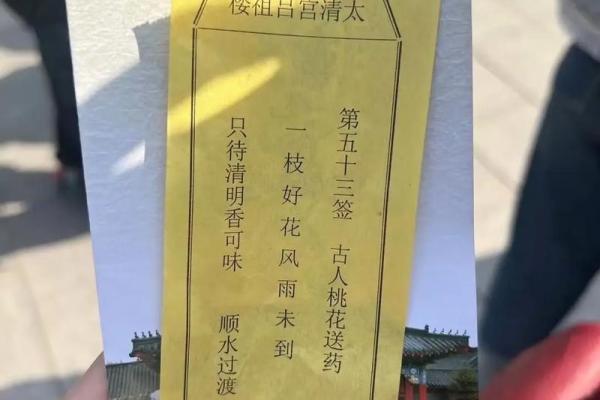 太清宫吕祖楼
第五十三签 古人桃花送药
一枝好花风雨未到
只待清明香可味 顺水过渡